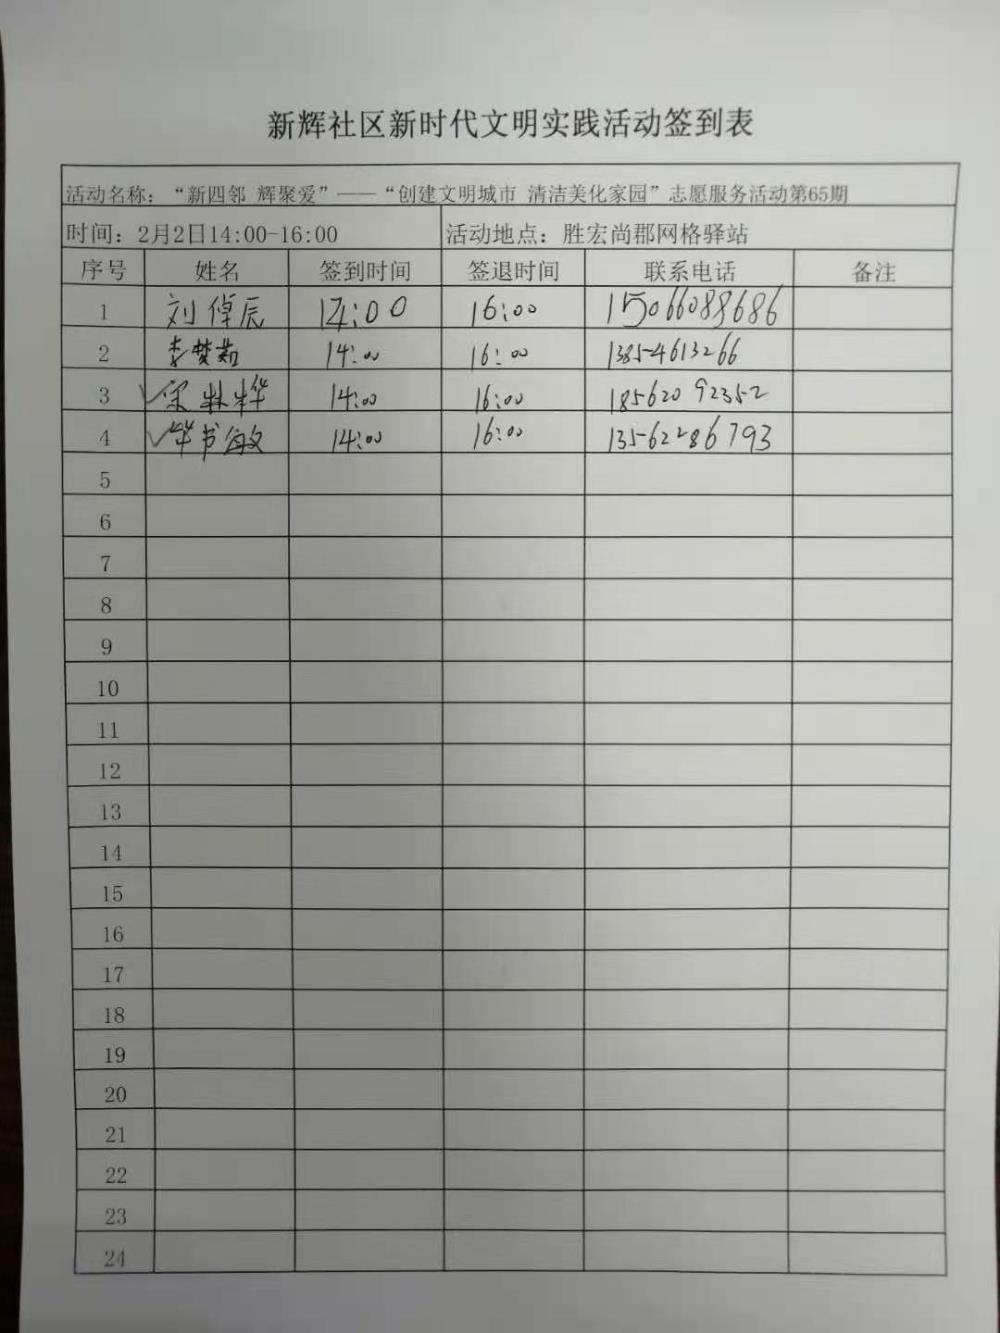 新辉社区新时代文明实践活动签到表
活动名称：“新四邻 辉聚爱”——“创建文明城市 清洁美化家园”志愿服务活动第65期
时间：2月2日14:00-16:00 活动地点：胜宏尚郡网格驿站
序号 姓名 签到时间 签退时间 联系电话 备注
1 刘倬辰 14:00 16:00 15066088686
2 李梦茹 14:00 16:00 13854613266
3 宋林桦 14:00 16:00 18562092352
4 毕书敏 14:00 16:00 13562286793
5
6
7
8
9
10
11
12
13
14
15
16
17
18
19
20
21
22
23
24